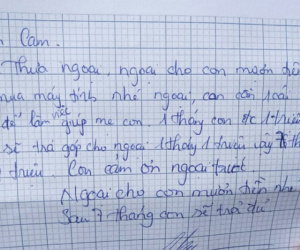 Cam.
Thưa ngoại, ngoại cho con mướn tiề
mua máy tính nhé ngoại, con cần 1 cái
để làm việc giúp mẹ con. 1 tháng con đc 1 triệu
sẽ trả góp cho ngoại 1 tháng 1 triệu
triệu. Con cảm ơn ngoại trước
Ngoại cho con mướn tiền nhé
Sau 7 tháng con sẽ trả đủ